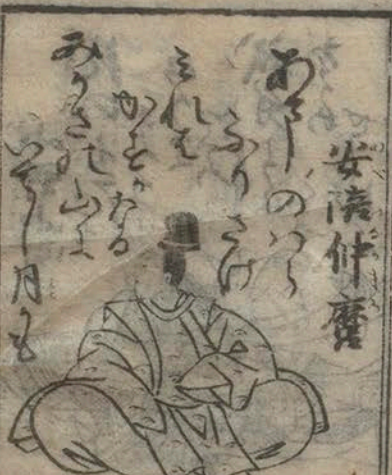 安陪仲麿
あまのハら
ふりさけ
ミれは
かすかなる
みかさの山に
いてし月かも